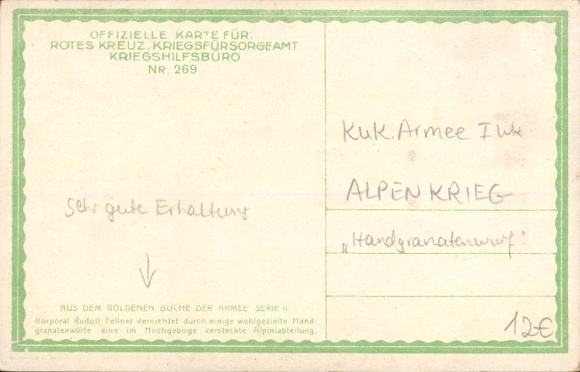 OFFIZIELLE KARTE FÜR:
ROTES KREUZ, KRIEGSFÜRSORGEAMT
KRIEGSHILFSBÜRO
NR. 269
KuK. Armee I wk
ALPENKRIEG
„Handgranatenwurf"
Sehr gute Erhaltung
AUS DEM GOLDENEN BUCHE DER ARMEE SERIE II.
Korporal Rudolf Fellner vernichtet durch einige wohlgezielte Hand-
granatenwürfe eine im Hochgebirge versteckte Alpiniabteilung.
12€